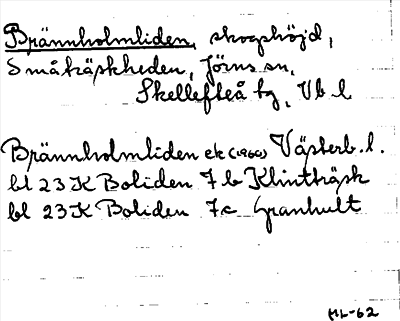 Brännholmliden, skogshöjd,
Småträskheden, Jörns sn,
Skellefteå kg, Vb l
Brännholmliden ek (1960) Västerb. l.
bl 23 K Boliden 7 b Klintträsk
bl 23 K Boliden 7c Granhult
HL-62